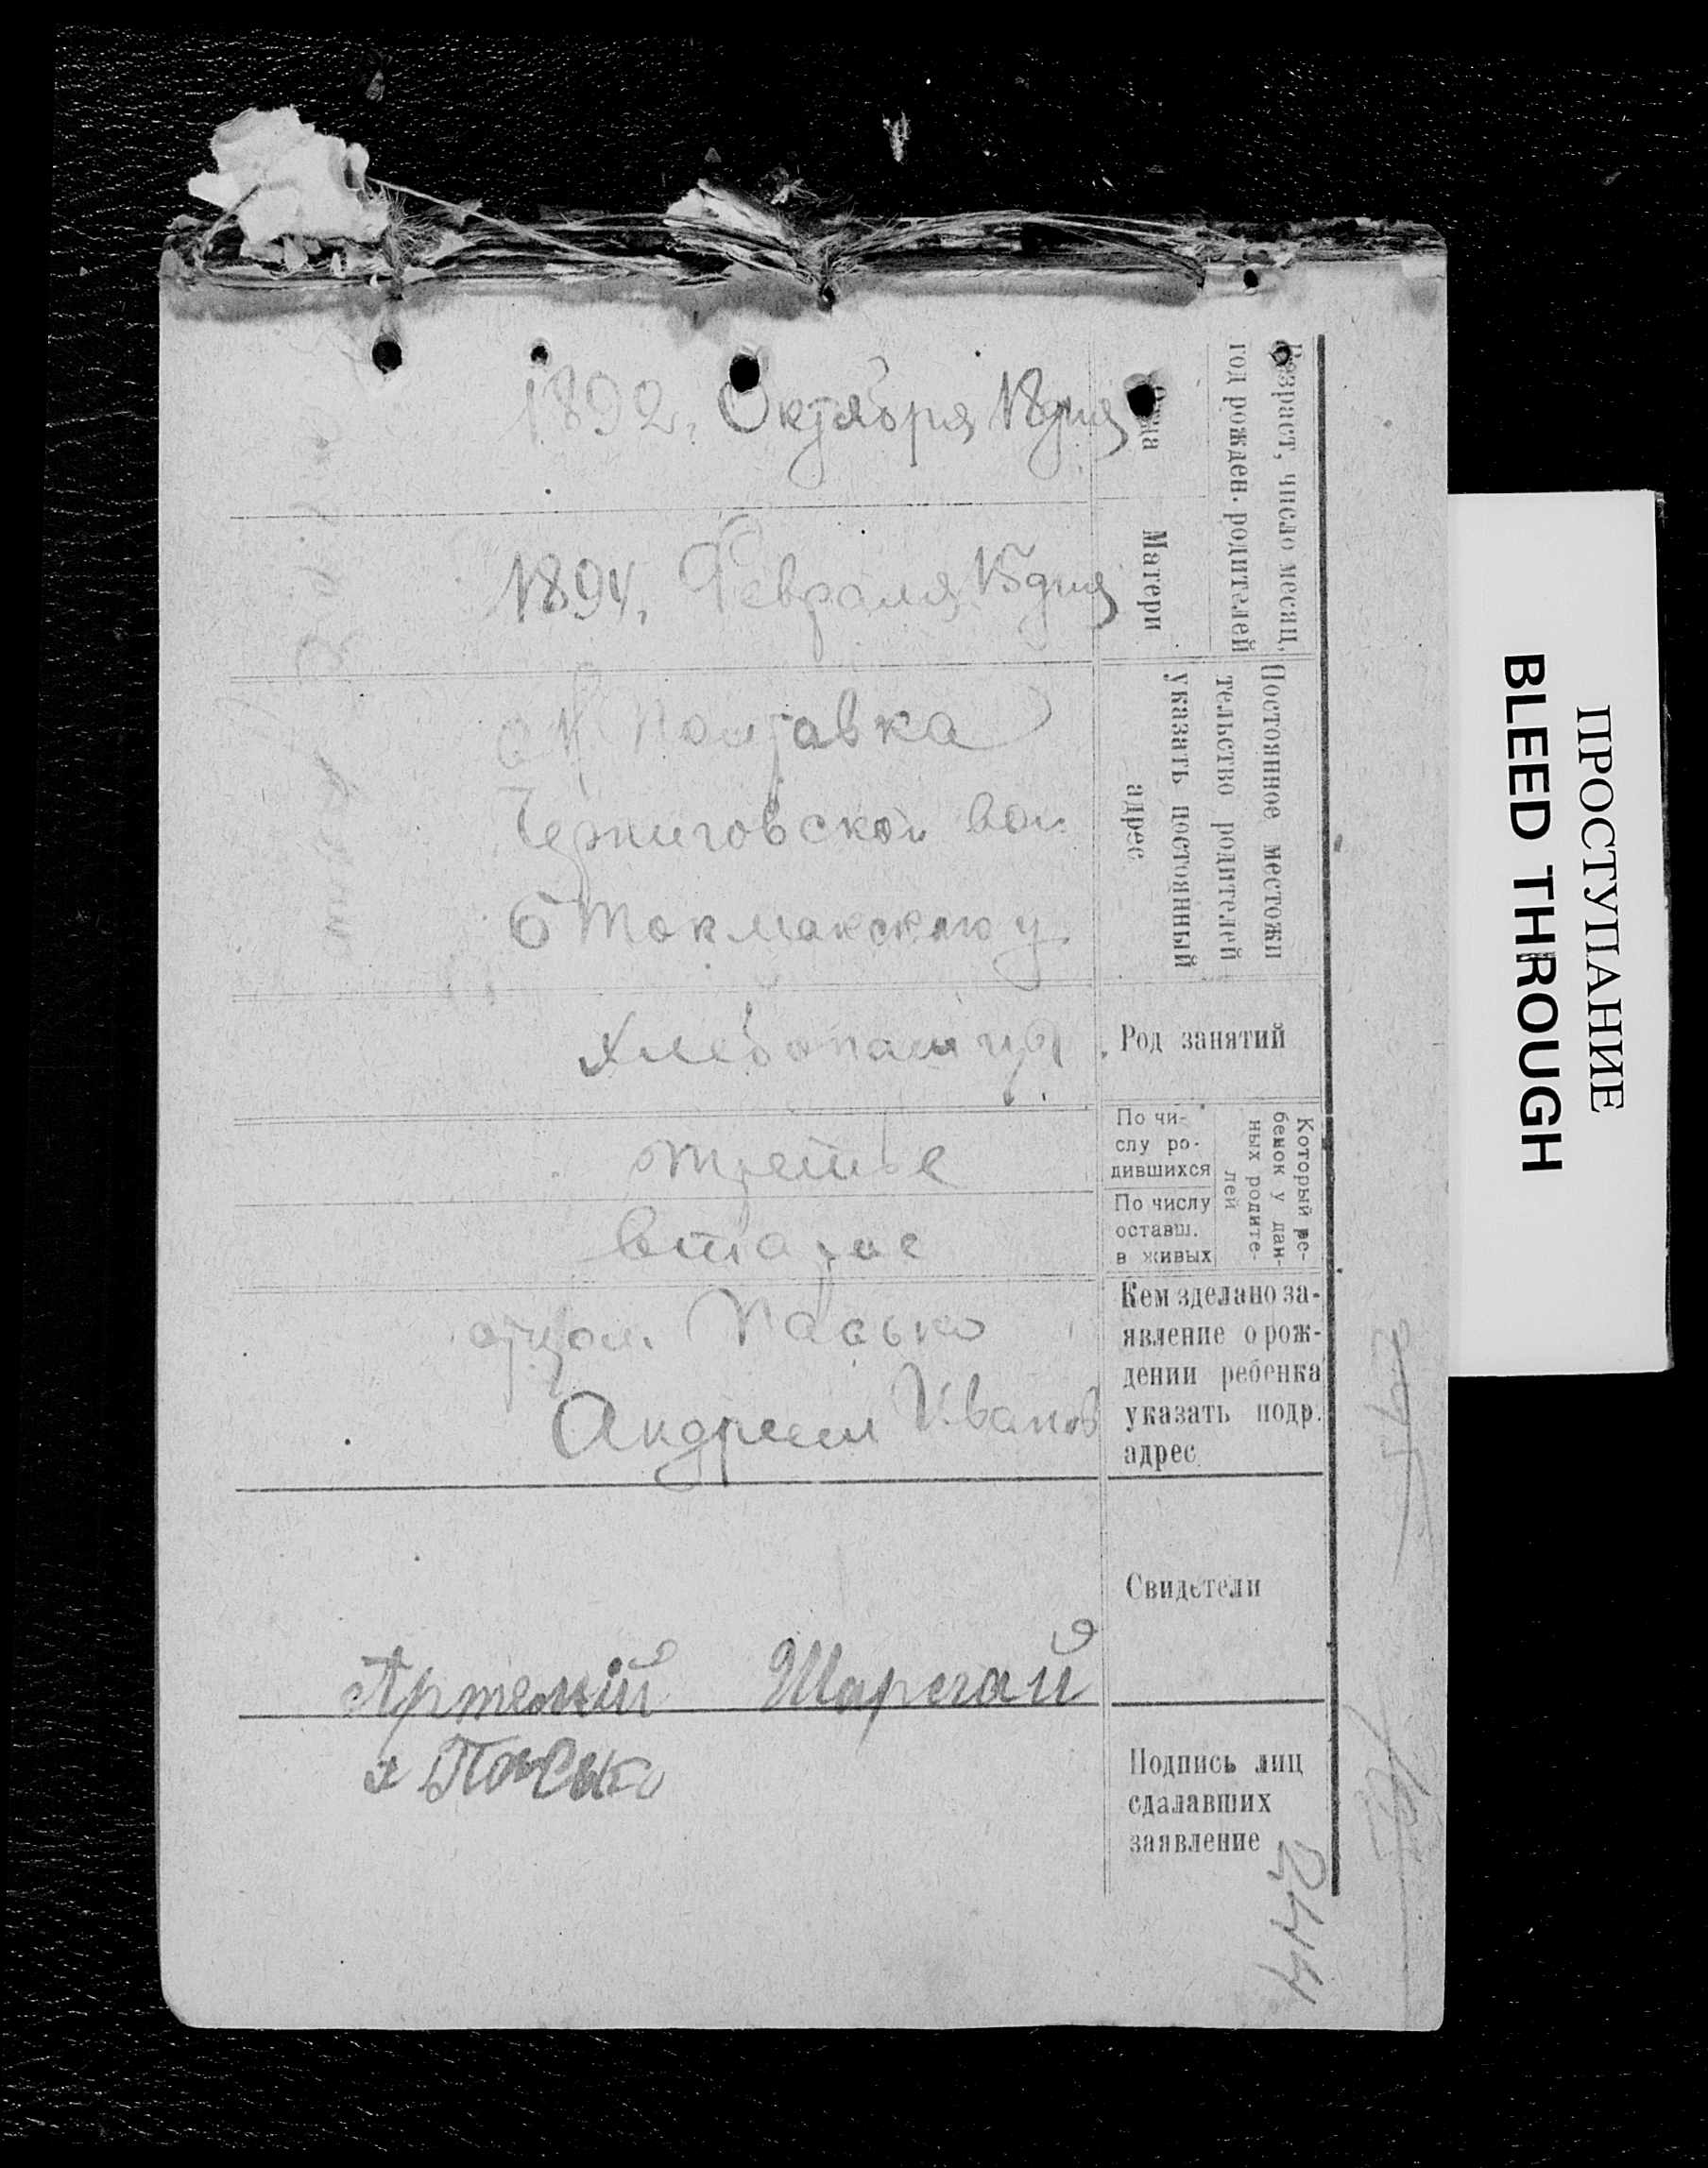 Возраст, число месяц,
год рожден. родителей
Отца
1892. Октября 18 дня
Матери
1894, Февраля 15 дня
Постоянное местожи
тельство родителей
указать постоянный
адрес
Полтавка
Черниговской вол
Б Токмакского у
Род занятий
Хлебопашцы
Который ре-
бенок у дан-
ных родите-
лей
По чи-
слу ро-
дившихся
третье
По числу
оставш.
в живых
второе
Кем зделано за-
явление о рож-
дении ребенка
указать подр.
адрес.
отцом Пасько
Андреем Иванов
Свидетели
Артемий Шарегай
Подпись лиц
сдалавших
заявление
Пасько
244
ПРОСТУПАНИЕ
BLEED THROUGH